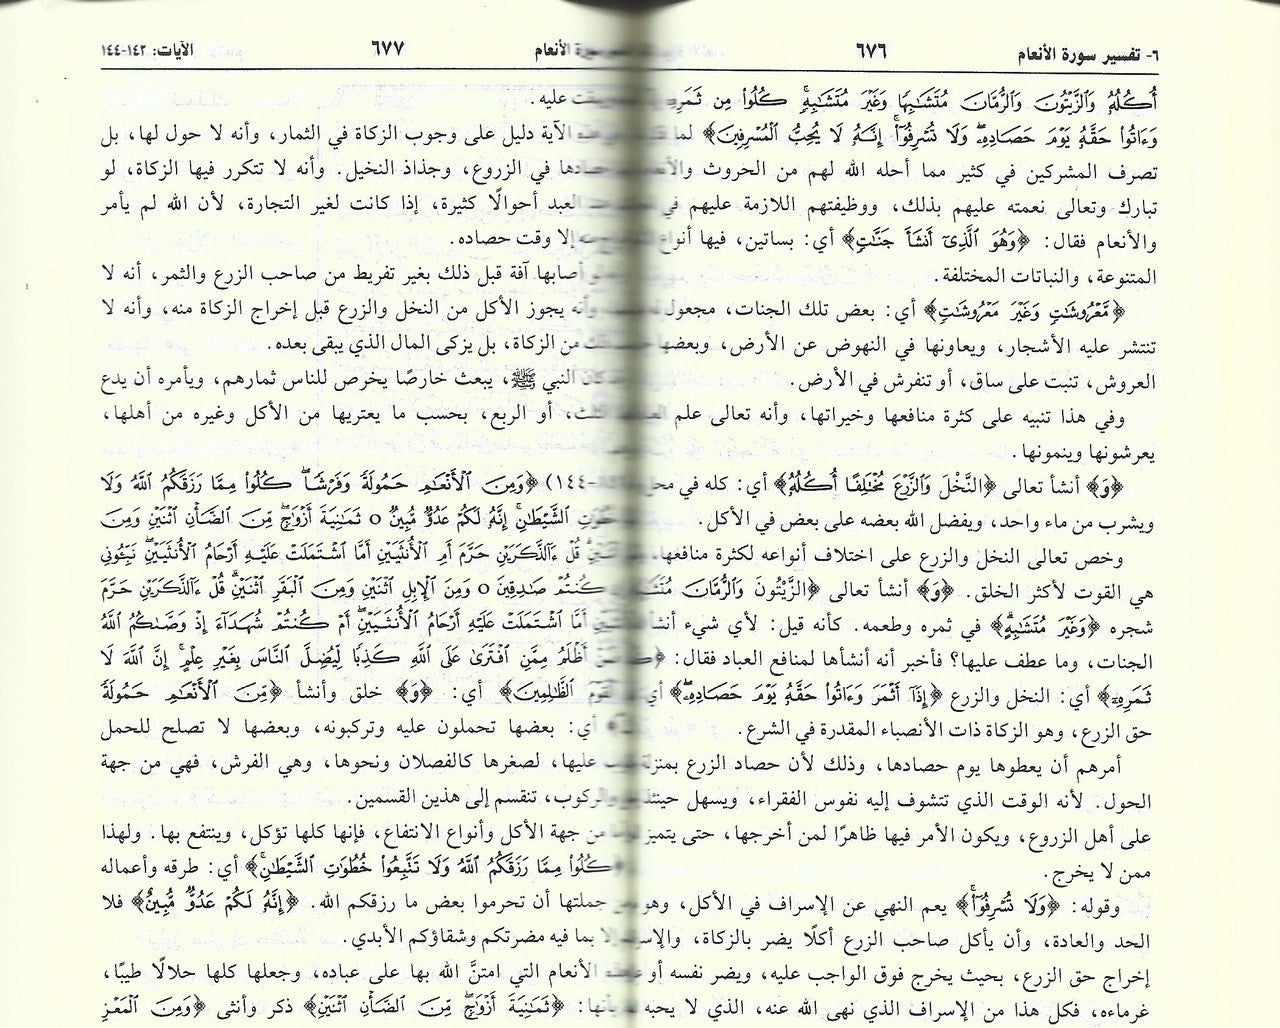 ٦- تفسير سورة الأنعام
٦٧٦
أُكُلُهُ وَالزَّيْتُونَ وَالرُّمَّانَ مُتَشَابِهًا وَغَيْرَ مُتَشَابِهٍ كُلُوا مِن ثَمَرِهِ
وَءَاتُوا حَقَّهُ يَوْمَ حَصَادِهِ وَلَا تُسْرِفُوا إِنَّهُ لَا يُحِبُّ الْمُسْرِفِينَ﴾ لما
تصرف المشركين في كثير مما أحله الله لهم من الحروث
تبارك وتعالى نعمته عليهم بذلك، ووظيفتهم اللازمة عليهم في
والأنعام فقال: ﴿وَهُوَ الَّذِي أَنشَأَ جَنَّاتٍ﴾ أي: بساتين، فيها أنواع
المتنوعة، والنباتات المختلفة.
﴿مَّعْرُوشَاتٍ وَغَيْرَ مَعْرُوشَاتٍ﴾ أي: بعض تلك الجنات، مجعول
تنتشر عليه الأشجار، ويعاونها في النهوض عن الأرض، وبعضها
العروش، تنبت على ساق، أو تنفرش في الأرض.
وفي هذا تنبيه على كثرة منافعها وخيراتها، وأنه تعالى علم
يعرشونها وينمونها.
﴿وَ﴾ أنشأ تعالى ﴿النَّخْلَ وَالزَّرْعَ مُخْتَلِفًا أُكُلُهُ﴾ أي: كله في محل
ويشرب من ماء واحد، ويفضل الله بعضه على بعض في الأكل.
وخص تعالى النخل والزرع على اختلاف أنواعه لكثرة منافعها،
هي القوت لأكثر الخلق. ﴿وَ﴾ أنشأ تعالى ﴿الزَّيْتُونَ وَالرُّمَّانَ
شجره ﴿وَغَيْرَ مُتَشَابِهٍ﴾ في ثمره وطعمه. كأنه قيل: لأي شيء أنشأ
الجنات، وما عطف عليها؟ فأخبر أنه أنشأها لمنافع العباد فقال:
ثَمَرِهِ﴾ أي: النخل والزرع ﴿إِذَا أَثْمَرَ وَءَاتُوا حَقَّهُ يَوْمَ حَصَادِهِ﴾
حق الزرع، وهو الزكاة ذات الأنصباء المقدرة في الشرع.
أمرهم أن يعطوها يوم حصادها، وذلك لأن حصاد الزرع بمنزلة
الحول. لأنه الوقت الذي تتشوف إليه نفوس الفقراء، ويسهل حينئذ
على أهل الزروع، ويكون الأمر فيها ظاهرًا لمن أخرجها، حتى يتميز
ممن لا يخرج.
وقوله: ﴿وَلَا تُسْرِفُوا﴾ يعم النهي عن الإسراف في الأكل، وهو
الحد والعادة، وأن يأكل صاحب الزرع أكلًا يضر بالزكاة،
إخراج حق الزرع، بحيث يخرج فوق الواجب عليه، ويضر نفسه أو
غرماءه، فكل هذا من الإسراف الذي نهى الله عنه، الذي لا يحبه
سورة الأنعام
٦٧٧
الآيات: ١٤٢-١٤٤
عليه.
الآية دليل على وجوب الزكاة في الثمار، وأنه لا حول لها، بل
في الزروع، وجذاذ النخيل. وأنه لا تتكرر فيها الزكاة، لو
العبد أحوالًا كثيرة، إذا كانت لغير التجارة، لأن الله لم يأمر
إلا وقت حصاده.
أصابها آفة قبل ذلك بغير تفريط من صاحب الزرع والثمر، أنه لا
وأنه يجوز الأكل من النخل والزرع قبل إخراج الزكاة منه، وأنه لا
من الزكاة، بل يزكى المال الذي يبقى بعده.
كان النبي ﷺ، يبعث خارصًا يخرص للناس ثمارهم، ويأمره أن يدع
الثلث، أو الربع، بحسب ما يعتريها من الأكل وغيره من أهلها،
١٤٤) ﴿وَمِنَ الْأَنْعَامِ حَمُولَةً وَفَرْشًا كُلُوا مِمَّا رَزَقَكُمُ اللَّهُ وَلَا
خُطُوَاتِ الشَّيْطَانِ إِنَّهُ لَكُمْ عَدُوٌّ مُّبِينٌ ٥ ثَمَانِيَةَ أَزْوَاجٍ مِّنَ الضَّأْنِ اثْنَيْنِ وَمِنَ
قُلْ ءَآلذَّكَرَيْنِ حَرَّمَ أَمِ الْأُنثَيَيْنِ أَمَّا اشْتَمَلَتْ عَلَيْهِ أَرْحَامُ الْأُنثَيَيْنِ نَبِّئُونِي
كُنتُمْ صَادِقِينَ ٥ وَمِنَ الْإِبِلِ اثْنَيْنِ وَمِنَ الْبَقَرِ اثْنَيْنِ قُلْ ءَآلذَّكَرَيْنِ حَرَّمَ
أَمَّا اشْتَمَلَتْ عَلَيْهِ أَرْحَامُ الْأُنثَيَيْنِ أَمْ كُنتُمْ شُهَدَاءَ إِذْ وَصَّاكُمُ اللَّهُ
أَظْلَمُ مِمَّنِ افْتَرَى عَلَى اللَّهِ كَذِبًا لِّيُضِلَّ النَّاسَ بِغَيْرِ عِلْمٍ إِنَّ اللَّهَ لَا
الْقَوْمَ الظَّالِمِينَ﴾ أي: ﴿وَ﴾ خلق وأنشأ ﴿مِّنَ الْأَنْعَامِ حَمُولَةً
أي: بعضها تحملون عليه وتركبونه، وبعضها لا تصلح للحمل
عليها، لصغرها كالفصلان ونحوها، وهي الفرش، فهي من جهة
والركوب، تنقسم إلى هذين القسمين.
من جهة الأكل وأنواع الانتفاع، فإنها كلها تؤكل، وينتفع بها. ولهذا
﴿كُلُوا مِمَّا رَزَقَكُمُ اللَّهُ وَلَا تَتَّبِعُوا خُطُوَاتِ الشَّيْطَانِ﴾ أي: طرقه وأعماله
جملتها أن تحرموا بعض ما رزقكم الله. ﴿إِنَّهُ لَكُمْ عَدُوٌّ مُّبِينٌ﴾ فلا
إلا بما فيه مضرتكم وشقاؤكم الأبدي.
الأنعام التي امتنَّ الله بها على عباده، وجعلها كلها حلالًا طيبًا،
بأنها: ﴿ثَمَانِيَةَ أَزْوَاجٍ مِّنَ الضَّأْنِ اثْنَيْنِ﴾ ذكر وأنثى ﴿وَمِنَ الْمَعْزِ